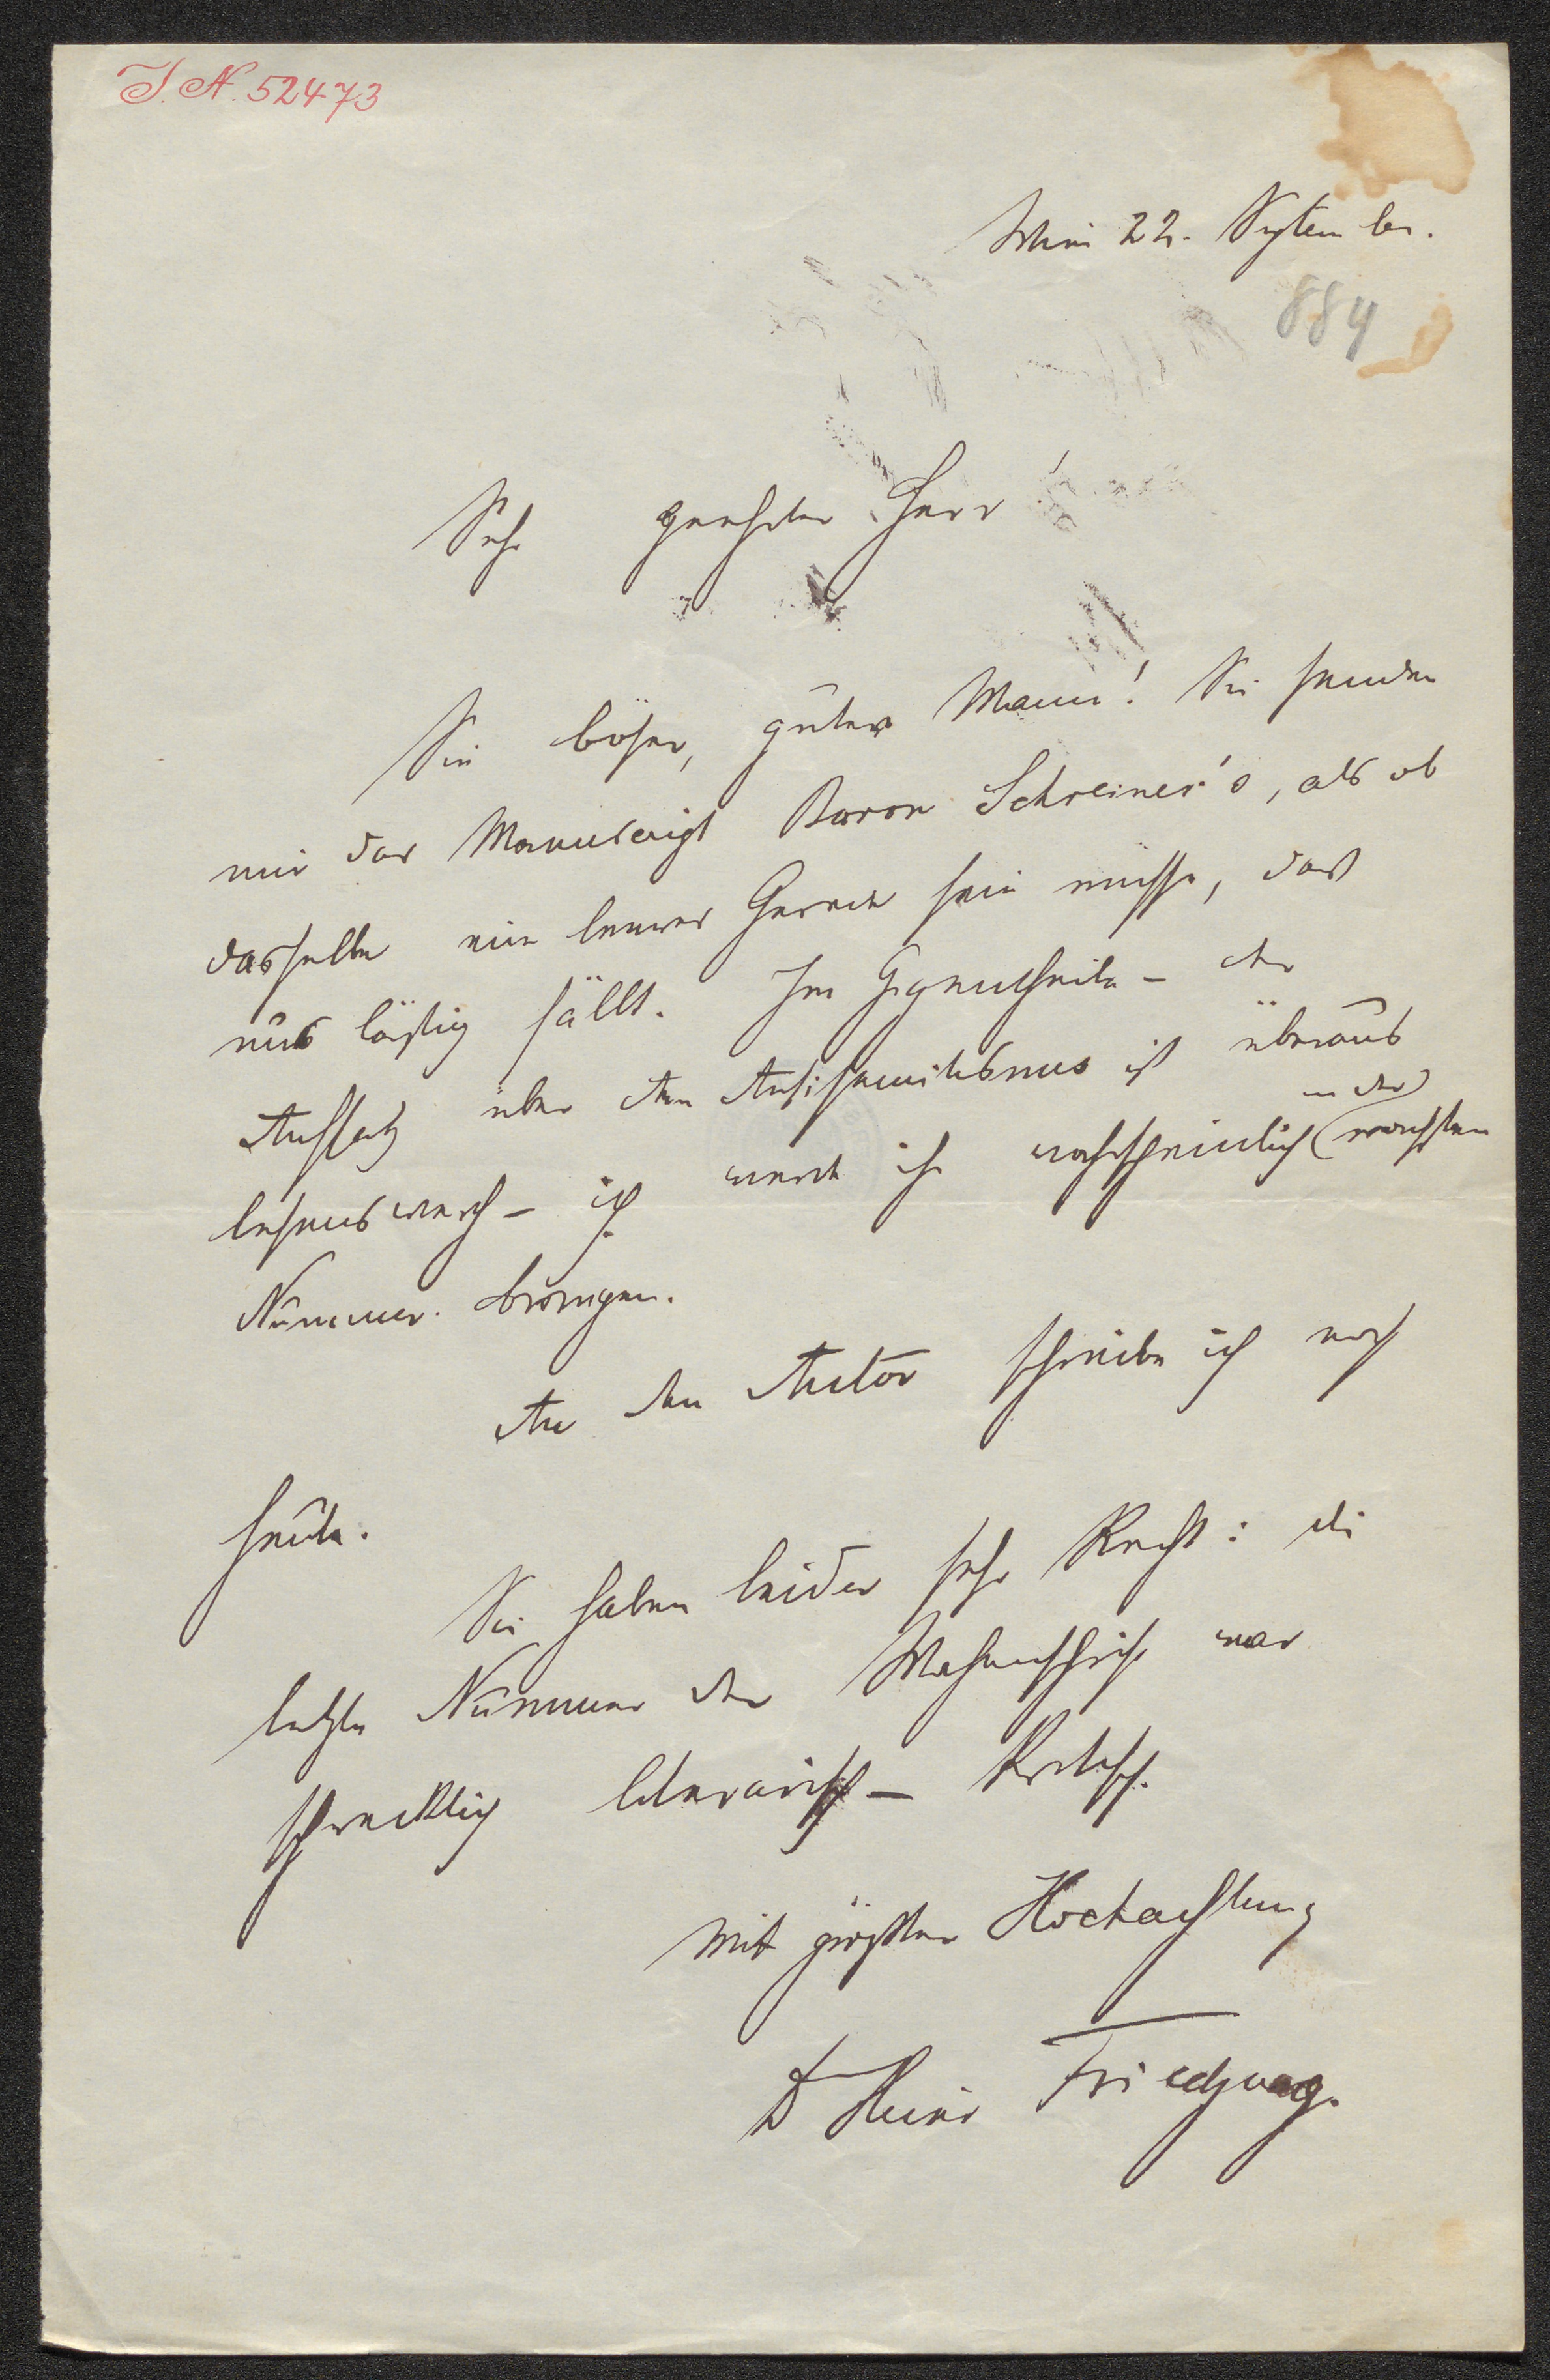 J. N. 52473
Wien 22. September.
884
Sehr geehrter Herr!
Sie böser, guter Mann! Sie senden
mir das Manuscript Baron Schreiner's, als ob
dasselbe eine leere sein müsse, das
uns lästig fällt. Im Gegentheile – der
Aufsatz über den Antisemitismus ist überaus
lesenswerth – ich werde ihn wahrscheinlich in der nächsten
Nummer bringen.
An den Autor schreibe ich noch
heute.
Sie haben leider sehr Recht: die
letzte Nummer der Wochenschrift war
schrecklich literarisch – kritisch.
Mit größter Hochachtung
Dr Heinr Friedjung.